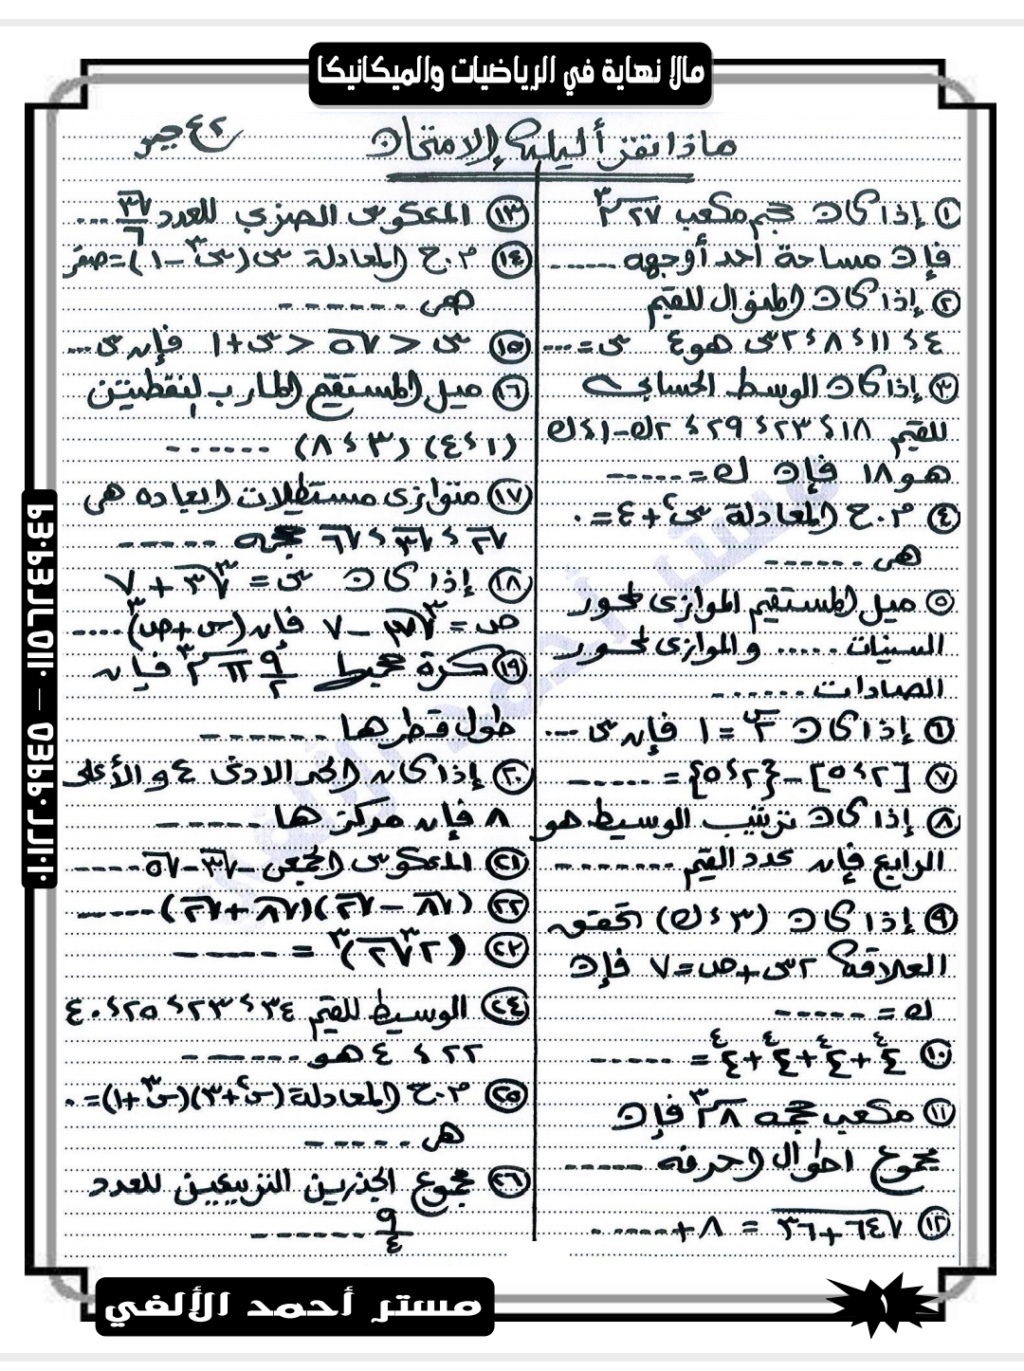 مالا نهاية في الرياضيات والميكانيكا
ماذا تقرأ ليلة الامتحان
٢ع جبر
١ إذا كان حجم مكعب ٢٧ سم٣
فإن مساحة أحد أوجهه ......
٢ إذا كان المنوال للقيم
٤ ، ١١ ، ٨ ، ٢س هو ٤ س = ....
٣ إذا كان الوسط الحسابى
للقيم ١٨ ، ٢٣ ، ٢٩ ، ٢ك-١ ، ك
هو ١٨ فإن ك = ------
٤ م.ح المعادلة س٢ + ٤ = ٠
هى ------
٥ ميل المستقيم الموازى لمحور
السينات ..... والموازى لمحور
الصادات ------
٦ إذا كان ٣س = ١ فإن س ...
٧ [٢ ، ٥] - {٢ ، ٥} = ------
٨ إذا كان ترتيب الوسيط هو
الرابع فإن عدد القيم --------
٩ إذا كان (٣ ، ك) تحقق
العلاقة ٢س + ص = ٧ فإن
ك = ------
١٠ ٤٢ + ٤٢ + ٤٢ + ٤٢ = ------
١١ مكعب حجمه ٨ سم٣ فإن
مجموع اطوال احرفه ------
١٢ √٦٤ + ٣٦ = ٨ + ------
١٣ المعكوس الضربي للعدد √٣/٦ ...
١٤ م.ح المعادلة س(س٣ - ١) = صفر
هى ------
١٥ س < √٥ < س + ١ فإن س ...
١٦ ميل المستقيم المار بنقطتين
(١ ، ٤) (٣ ، ٨) ------
١٧ متوازى مستطيلات ابعاده هى
√٢ ، √٣ ، √٦ حجمه ------
١٨ إذا كان س = ٣√٣ + ٧
ص = ٣√٣ - ٧ فإن (س + ص)٣ ....
١٩ كرة حجمها ٩/٢ π سم٣ فإن
طول قطرها ------
٢٠ إذا كان الحد الادنى ٤ والأعلى
٨ فإن مركزها ------
٢١ المعكوس الجمعى √٣ - √٥ ----
٢٢ (√٨ - √٢)(√٨ + √٢) -----
٢٣ (٢ ٣√٢)٣ = ------
٢٤ الوسيط للقيم ٣٤ ، ٢٣ ، ٢٥ ، ٤٠
٢٢ ، ٤ هو ------
٢٥ م.ح المعادلة (س٢ + ٣)(س٣ + ١) = ٠
هى ------
٢٦ مجموع الجذرين التربيعين للعدد
٩/٤ ------
٠١٠٢١١٢٠٩٣٣٥ - ٠١١٥٦١٤٣٩٤٩
مستر أحمد الألفي
١